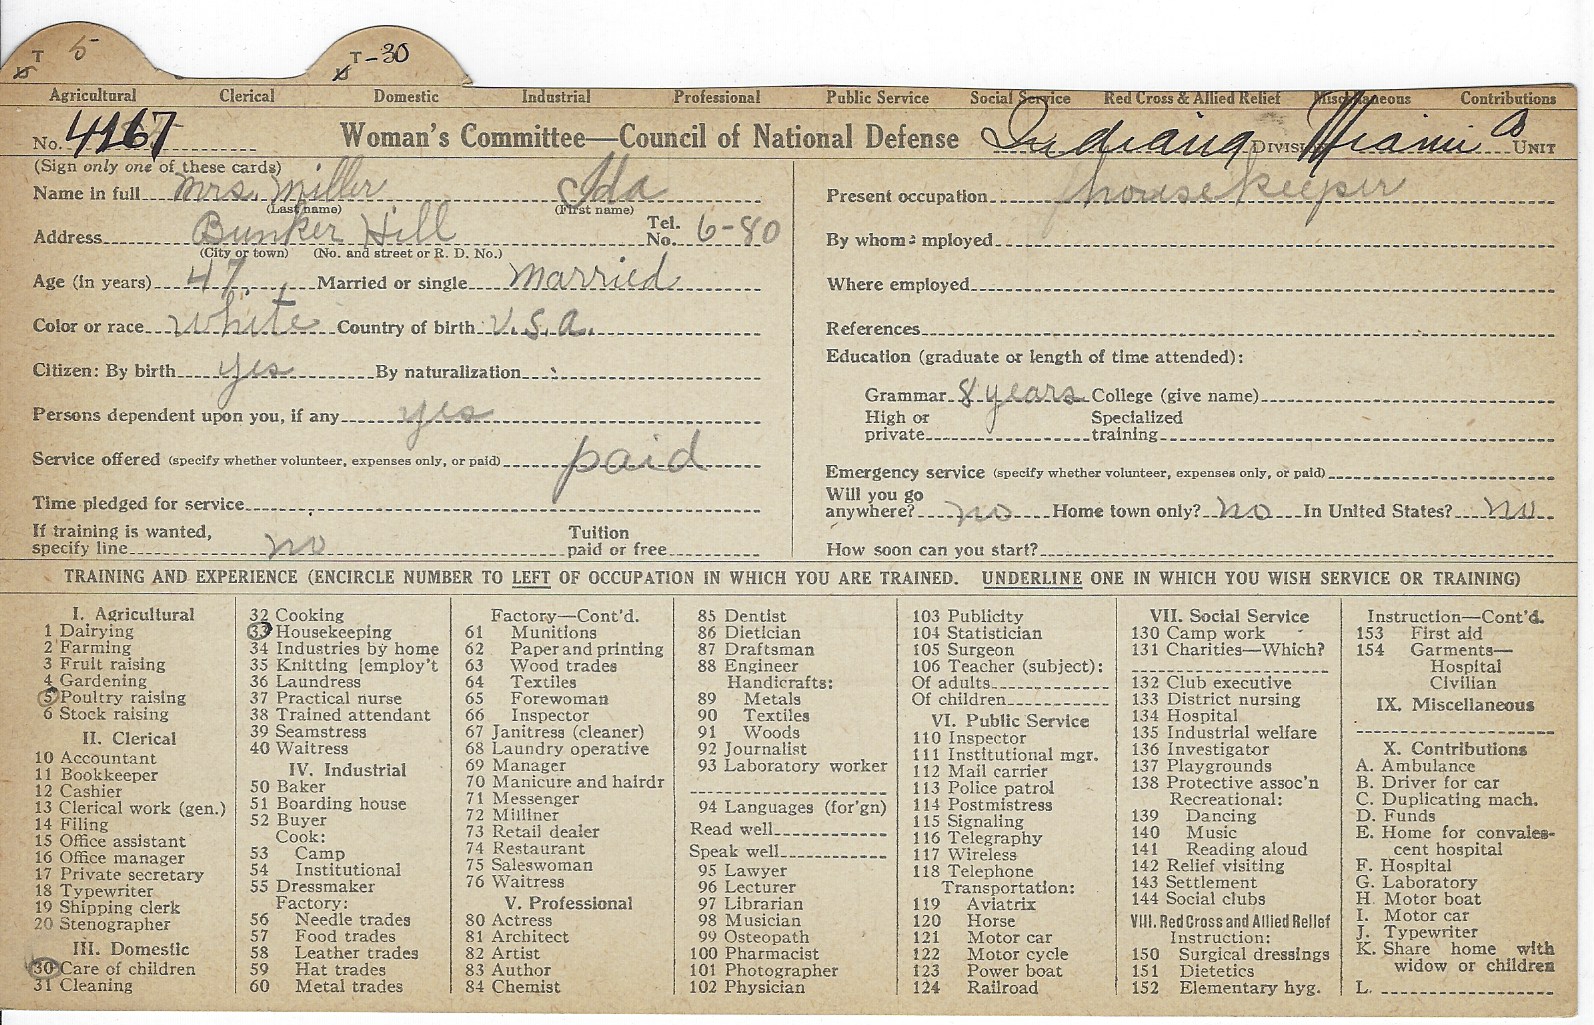 T 5 T-30
Agricultural Clerical Domestic Industrial Professional Public Service Social Service Red Cross & Allied Relief Miscellaneous Contributions
No. 4167 Woman's Committee—Council of National Defense Indiana DIVISION Miami B UNIT
(Sign only one of these cards)
Name in full Mrs. Miller Ida
(Last name) (First name)
Address Bunker Hill Tel. No. 6-80
(City or town) (No. and street or R. D. No.)
Age (in years) 47 Married or single Married
Color or race White Country of birth U.S.A.
Citizen: By birth yes By naturalization
Persons dependent upon you, if any yes
Service offered (specify whether volunteer, expenses only, or paid) paid
Time pledged for service
If training is wanted, Tuition
specify line no paid or free
Present occupation housekeeper
By whom employed
Where employed
References
Education (graduate or length of time attended):
Grammar 8 years College (give name)
High or Specialized
private training
Emergency service (specify whether volunteer, expenses only, or paid)
Will you go
anywhere? no Home town only? no In United States? no
How soon can you start?
TRAINING AND EXPERIENCE (ENCIRCLE NUMBER TO LEFT OF OCCUPATION IN WHICH YOU ARE TRAINED. UNDERLINE ONE IN WHICH YOU WISH SERVICE OR TRAINING)
I. Agricultural
1 Dairying
2 Farming
3 Fruit raising
4 Gardening
5 Poultry raising
6 Stock raising
II. Clerical
10 Accountant
11 Bookkeeper
12 Cashier
13 Clerical work (gen.)
14 Filing
15 Office assistant
16 Office manager
17 Private secretary
18 Typewriter
19 Shipping clerk
20 Stenographer
III. Domestic
30 Care of children
31 Cleaning
32 Cooking
33 Housekeeping
34 Industries by home
35 Knitting [employ't
36 Laundress
37 Practical nurse
38 Trained attendant
39 Seamstress
40 Waitress
IV. Industrial
50 Baker
51 Boarding house
52 Buyer
Cook:
53 Camp
54 Institutional
55 Dressmaker
Factory:
56 Needle trades
57 Food trades
58 Leather trades
59 Hat trades
60 Metal trades
Factory—Cont'd.
61 Munitions
62 Paper and printing
63 Wood trades
64 Textiles
65 Forewoman
66 Inspector
67 Janitress (cleaner)
68 Laundry operative
69 Manager
70 Manicure and hairdr
71 Messenger
72 Milliner
73 Retail dealer
74 Restaurant
75 Saleswoman
76 Waitress
V. Professional
80 Actress
81 Architect
82 Artist
83 Author
84 Chemist
85 Dentist
86 Dietician
87 Draftsman
88 Engineer
Handicrafts:
89 Metals
90 Textiles
91 Woods
92 Journalist
93 Laboratory worker
94 Languages (for'gn)
Read well
Speak well
95 Lawyer
96 Lecturer
97 Librarian
98 Musician
99 Osteopath
100 Pharmacist
101 Photographer
102 Physician
103 Publicity
104 Statistician
105 Surgeon
106 Teacher (subject):
Of adults
Of children
VI. Public Service
110 Inspector
111 Institutional mgr.
112 Mail carrier
113 Police patrol
114 Postmistress
115 Signaling
116 Telegraphy
117 Wireless
118 Telephone
Transportation:
119 Aviatrix
120 Horse
121 Motor car
122 Motor cycle
123 Power boat
124 Railroad
VII. Social Service
130 Camp work
131 Charities—Which?
132 Club executive
133 District nursing
134 Hospital
135 Industrial welfare
136 Investigator
137 Playgrounds
138 Protective assoc'n
Recreational:
139 Dancing
140 Music
141 Reading aloud
142 Relief visiting
143 Settlement
144 Social clubs
VIII. Red Cross and Allied Relief
Instruction:
150 Surgical dressings
151 Dietetics
152 Elementary hyg.
Instruction—Cont'd.
153 First aid
154 Garments—
Hospital
Civilian
IX. Miscellaneous
X. Contributions
A. Ambulance
B. Driver for car
C. Duplicating mach.
D. Funds
E. Home for convales-
cent hospital
F. Hospital
G. Laboratory
H. Motor boat
I. Motor car
J. Typewriter
K. Share home with
widow or children
L.